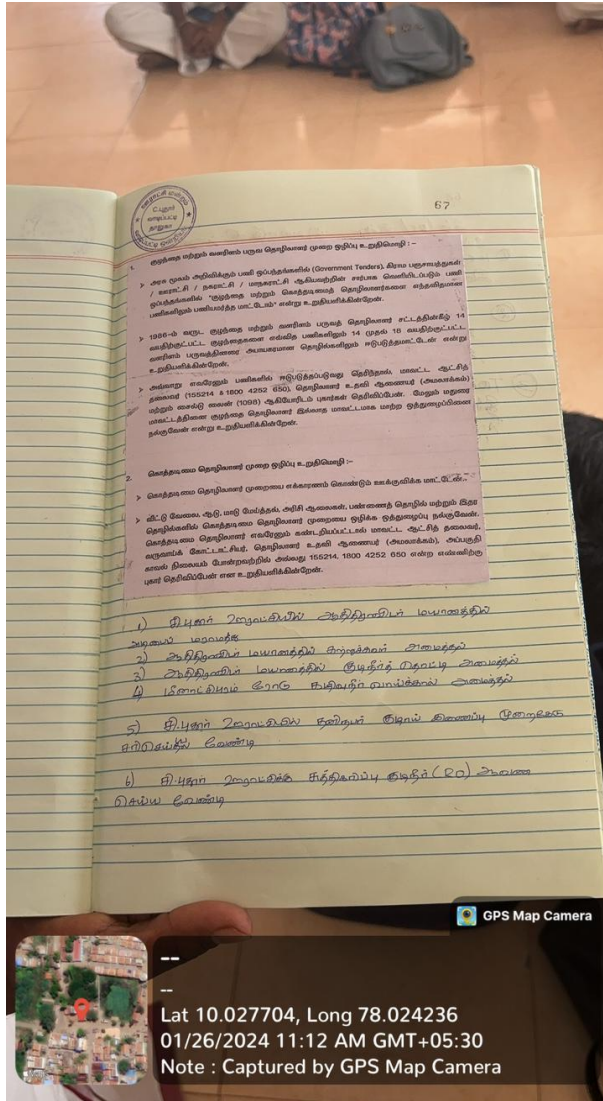 67
ஊராட்சி மன்றம்
C.புதூர்
வாடிப்பட்டி
தாலுகா
1. குழந்தை மற்றும் வளரிளம் பருவ தொழிலாளர் முறை ஒழிப்பு உறுதிமொழி : –
➢ அரசு மூலம் அறிவிக்கும் பணி ஒப்பந்தங்களில் (Government Tenders), கிராம பஞ்சாயத்துகள்
/ ஊராட்சி / நகராட்சி / மாநகராட்சி ஆகியவற்றின் சார்பாக வெளியிடப்படும் பணி
ஒப்பந்தங்களில் "குழந்தை மற்றும் கொத்தடிமைத் தொழிலாளர்களை எந்தவிதமான
பணிகளிலும் பணியமர்த்த மாட்டோம்" என்று உறுதியளிக்கின்றேன்.
➢ 1986-ம் வருட குழந்தை மற்றும் வளரிளம் பருவத் தொழிலாளர் சட்டத்தின்கீழ் 14
வயதிற்குட்பட்ட குழந்தைகளை எவ்வித பணிகளிலும் 14 முதல் 18 வயதிற்குட்பட்ட
வளரிளம் பருவத்தினரை அபாயகரமான தொழில்களிலும் ஈடுபடுத்தமாட்டேன் என்று
உறுதியளிக்கின்றேன்.
➢ அவ்வாறு எவரேனும் பணிகளில் ஈடுபடுத்தப்படுவது தெரிந்தால், மாவட்ட ஆட்சித்
தலைவர் (155214 & 1800 4252 650), தொழிலாளர் உதவி ஆணையர் (அமலாக்கம்)
மற்றும் சைல்டு லைன் (1098) ஆகியோரிடம் புகார்கள் தெரிவிப்பேன். மேலும் மதுரை
மாவட்டத்தினை குழந்தை தொழிலாளர் இல்லாத மாவட்டமாக மாற்ற ஒத்துழைப்பினை
நல்குவேன் என்று உறுதியளிக்கின்றேன்.
2. கொத்தடிமை தொழிலாளர் முறை ஒழிப்பு உறுதிமொழி :–
➢ கொத்தடிமை தொழிலாளர் முறையை எக்காரணம் கொண்டும் ஊக்குவிக்க மாட்டேன்.
➢ வீட்டு வேலை, ஆடு, மாடு மேய்த்தல், அரிசி ஆலைகள், பண்ணைத் தொழில் மற்றும் இதர
தொழில்களில் கொத்தடிமை தொழிலாளர் முறையை ஒழிக்க ஒத்துழைப்பு நல்குவேன்.
கொத்தடிமை தொழிலாளர் எவரேனும் கண்டறியப்பட்டால் மாவட்ட ஆட்சித் தலைவர்,
வருவாய்க் கோட்டாட்சியர், தொழிலாளர் உதவி ஆணையர் (அமலாக்கம்), அப்பகுதி
காவல் நிலையம் போன்றவற்றில் அல்லது 155214, 1800 4252 650 என்ற எண்ணிற்கு
புகார் தெரிவிப்பேன் என உறுதியளிக்கின்றேன்.
1) சி.புதூர் ஊராட்சியில் ஆதிதிராவிடர் மயானத்தில்
மராமத்து
2) ஆதிதிராவிடர் மயானத்தில் சுற்றுச்சுவர் அமைத்தல்
3) ஆதிதிராவிடர் மயானத்தில் குடிநீர்த் தொட்டி அமைத்தல்
4) மீனாட்சிபுரம் ரோடு கழிவுநீர் வாய்க்கால் அமைத்தல்
5) சி.புதூர் ஊராட்சியில் தனிநபர் குடிநீர் இணைப்பு முறைகேடு
சரிசெய்தல் வேண்டி
6) சி.புதூர் ஊராட்சிக்கு சுத்திகரிப்பு குடிநீர் (RO) ஆவண
செய்ய வேண்டி
GPS Map Camera
--
--
Lat 10.027704, Long 78.024236
01/26/2024 11:12 AM GMT+05:30
Note : Captured by GPS Map Camera